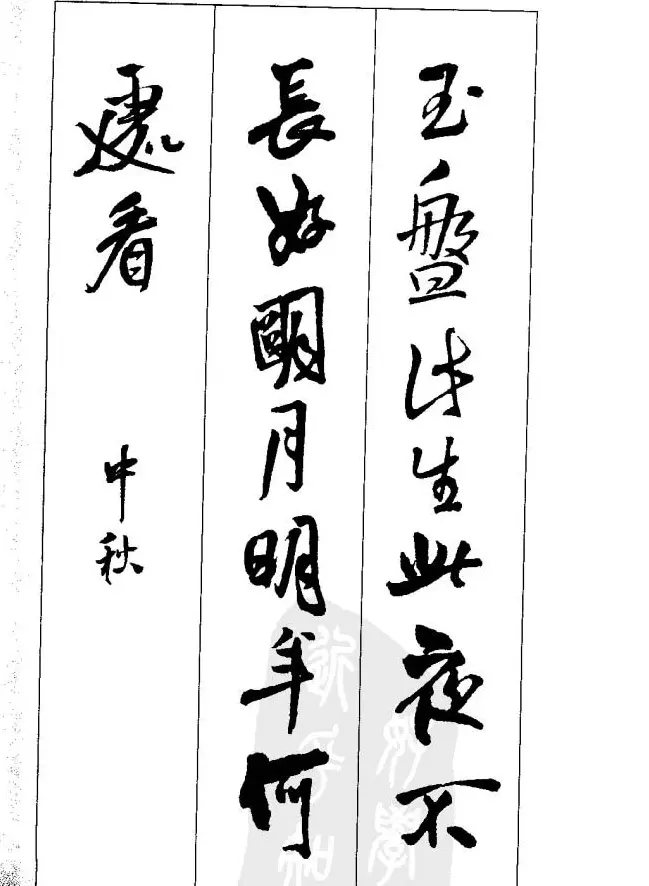 玉盤此生此夜不
長好朙月明年何
處看 中秋